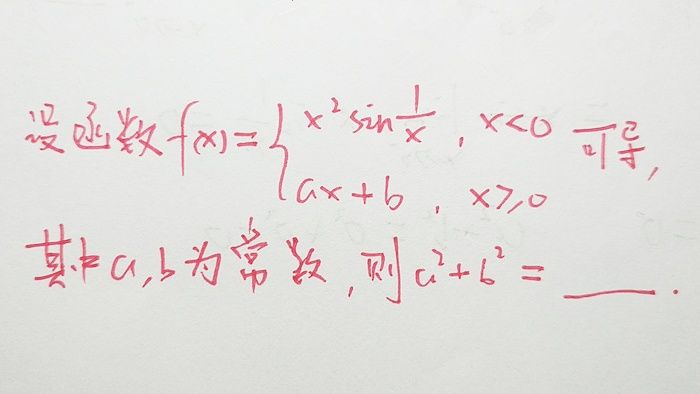 设函数 f(x) = { x² sin 1/x , x<0 可导,
ax + b , x≥0
其中 a, b 为常数, 则 a² + b² = ____ .